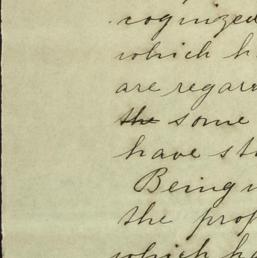 cognized
which h
are regar
the some
have st
Being
the prop
which ha